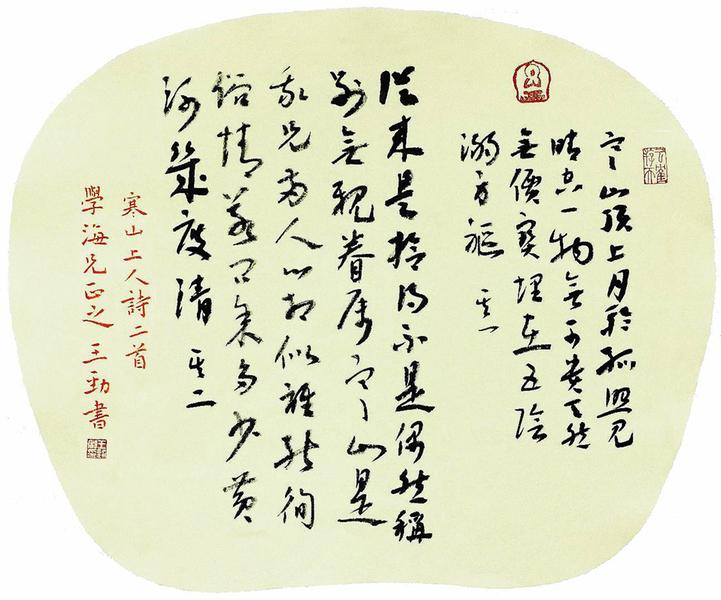 寒山頂上月輪孤照見
晴空一物無可貴天然
無價寶埋在五陰
溺身軀 其一
從來是拾得不是偶然稱
別無親眷屬寒山是
我兄兩人心相似誰能徇
俗情若問年多少黃
河幾度清 其二
寒山上人詩二首
學海兄正之 王勁書